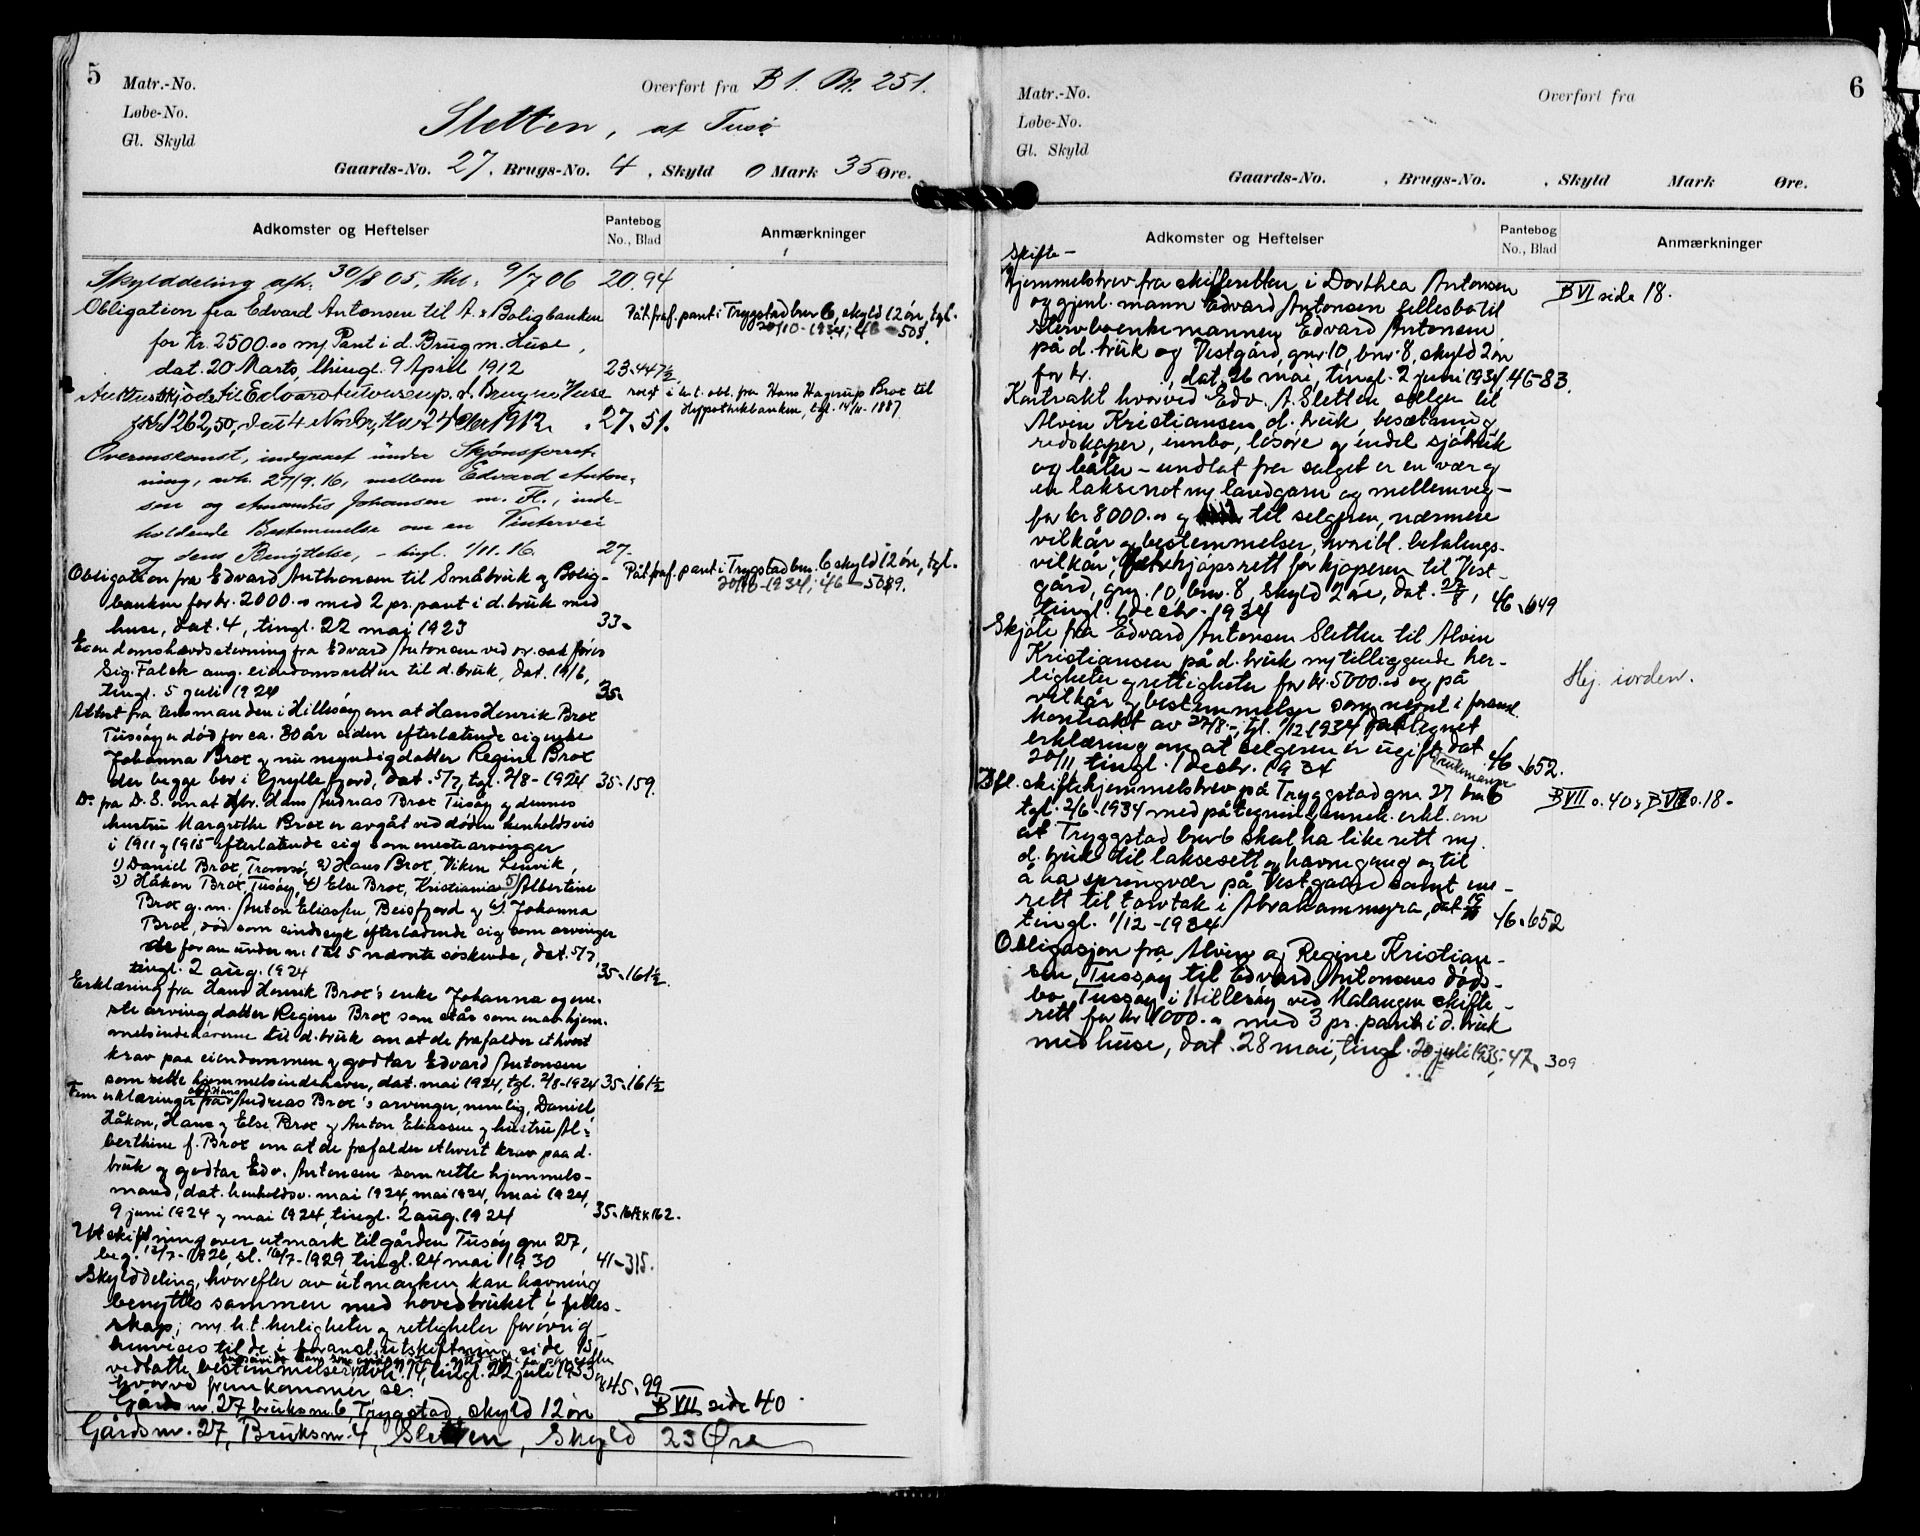 5
Matr.-No.
Løbe-No.
Gl. Skyld
Overført fra B 1. Bl. 251.
Sletten, af Tusø
Gaards-No. 27, Brugs-No. 4, Skyld 0 Mark 35 Øre.
Adkomster og Heftelser
Pantebog
No., Blad
Anmærkninger
Skylddeling afh. 30/8 05, thl. 9/7 06 20.94
Obligation fra Edvard Antonsen til A. & Boligbanken
for Kr. 2500.00 m/ Pant i d. Brug m. Huse,
dat. 20 Marts, thingl. 9 April 1912 23.447½
Påt. fraf. pant i Trygstad bnr 6, skyld 12 øre, tgl.
20/10-1934; 46-508.
Auktionsskjøde til Edvard Antonsen p. d. Brug m/ Huse
for Kr. 1262,50, dat. 4 Novbr, thl. 24 1912. 27.51.
i h. t. obl. fra Hans Hagerup Brox til
Hypothekbanken, tgl. 14/11-1887
Overenskomst, indgaaet under Skjønsforret-
ning, avh. 27/9.16, mellem Edvard Anton-
sen og Amandus Johansen m. Fl., inde-
holdende Bestemmelse om en Vintervei
og dens Benyttelse, - tingl. 1/11.16. 27.
Obligation fra Edvard Anthonsen til Småbruk og Bolig-
banken for kr. 2000.00 med 2 pr. pant i d. bruk med
huse, dat. 4, tingl. 22 mai 1923 33-
Påt. fraf. pant i Trygstad bnr. 6 skyld 12 øre, tgl.
20/10-1934; 46-509.
Eiendomshævdsstevning fra Edvard Antonsen ved o.r. sakfører
Sig. Falck ang. eiendomsretten til d. bruk, dat. 14/6,
tingl. 5 juli 1924 35-
Attest fra lensmanden i Hillesøy om at Hans Henrik Brox
Tussøy er død for ca. 30 år siden efterlatende sig enke
Johanna Brox og nu myndig datter Regine Brox
der begge bor i Gryllefjord, dat. 5/7, tgl. 2/8-1924 35-159.
Do fra D. S. om at Hans Andreas Brox Tusøy og dennes
hustru Margrethe Brox er avgåt ved døden henholdsvis
i 1911 og 1915 efterlatende sig som eneste arvinger
1) Daniel Brox, Tromsø, 2) Hans Brox, Viken Lenvik,
3) Håkon Brox, Tusøy, 4) Else Brox, Kristiania, 5) Albertine
Brox g. m. Anton Eliassen, Beisfjord og 6) Johanna
Brox, død som sindssyk efterladende sig som arvinger
de foran under nr. 1 til 5 nævnte søskende, dat. 5/7,
tingl. 2 aug. 1924 35-161½.
Erklæring fra Hans Henrik Brox's enke Johanna og ene-
ste arving datter Regine Brox som står som en av hjem-
melsindehaverne til d. bruk om at de frafalder ethvert
krav paa eiendommen og godtar Edvard Antonsen
som rette hjemmelsindehaver, dat. mai 1924, tgl. 2/8-1924 35-161½
Fem erklæringer fra Hans Andreas Brox's arvinger, nemlig, Daniel,
Håkon, Hans og Else Brox og Anton Eliassen og hustru Al-
berthine f. Brox om at de frafalder ethvert krav paa d.
bruk og godtar Edv. Antonsen som rette hjemmels-
mand, dat. henholdsv. mai 1924, mai 1924, mai 1924,
9 juni 1924 og mai 1924, tingl. 2 aug. 1924 35-161½ & 162.
Utskiftning over utmark til gården Tusøy gnr 27,
beg. 12/7-1926, sl. 16/7-1929, tingl. 24 mai 1930 41-315.
Skylddeling, hvorefter av utmarken kan havning
benyttes sammen med hovedbruket i felles-
skap; m. h. t. herligheter og rettigheter forøvrig
henvises til de i foranst. utskiftning side 15
vedtatte bestemmelser, avh. 14, tingl. 22 juli 1933, 45-99
hvorved fremkommer se:
Gårdsnr. 27 bruksnr. 6, Trygstad, skyld 12 øre B VII side 40
Gårdsnr. 27, Bruksnr. 4, Sletten, Skyld 23 Øre
6
Matr.-No.
Løbe-No.
Gl. Skyld
Overført fra
Gaards-No. , Brugs-No. , Skyld Mark Øre.
Adkomster og Heftelser
Pantebog
No., Blad
Anmærkninger
Skifte-
hjemmelsbrev fra skifteretten i Dorthea Antonsen
og gjenl. mann Edvard Antonsen fellesbo til
stervboenkemannen Edvard Antonsen
på d. bruk og Vestgård, gnr. 10, bnr. 8, skyld 2 øre
for kr. , dat. 26 mai, tingl. 2 juni 1934, 46-83.
B VI side 18.
Kontrakt hvorved Edv. A. Sletten selger til
Alvin Kristiansen d. bruk, besætning,
redskaper, innbo, løsøre og indel sjøbruk
og båter - undtat fra salget er en vær og
en laksenot m/ landgarn og mellemveg -
for kr 8000.00 og til selgeren, nærmere
vilkår og bestemmelser, hvoribl. betalings-
vilkår, forkjøpsrett for kjøperen til Vest-
gård, gnr. 10, bnr. 8, skyld 2 øre, dat. 27/8,
tingl. 1 decbr. 1934 46-649
Skjøte fra Edvard Antonsen Sletten til Alvin
Kristiansen på d. bruk m/ tilliggende her-
ligheter og rettigheter for kr. 5000.00 og på
vilkår og bestemmelser som nevnt i foranst.
kontrakt av 27/8-, tgl. 1/12-1934 påtegnet
erklæring om at selgeren er ugift enkemann, dat.
20/11, tingl. 1 decbr. 1934 46-652.
Hej. i orden.
Bfl. skiftehjemmelsbrev på Tryggstad gnr. 27 bnr 6
tgl. 2/6-1934 med påtegnet gjennek. erkl. om
at Tryggstad bnr 6 skal ha like rett m/
d. bruk til laksesett og havnegang og til
å ha springvær på Vestgaard samt en-
rett til torvtak i Abrahammyra, dat.
tingl. 1/12-1934 46-652
B VII s. 40 & B VI s. 18-
Obligasjon fra Alvin og Regine Kristian-
sen, Tussøy til Edvard Antonsens døds-
bo, Tussøy i Hillesøy ved Malangen skifte-
rett for kr 1000.00 med 3 pr. pant i d. bruk
med huse, dat. 28 mai, tingl. 20 juli 1935. 47-309